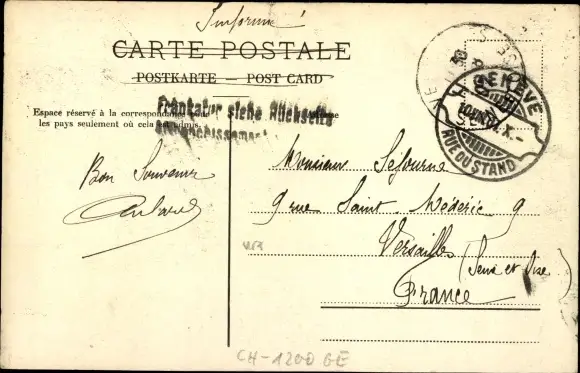 Imprimé
CARTE POSTALE
POSTKARTE — POST CARD
Frankatur siehe Rückseite
Espace réservé à la correspondance
les pays seulement où cela admis.
GENÈVE
RUE DU STAND
Bon Souvenir
Monsieur Sejourne
9 rue Saint-Méderic 9
Versailles
(Seine et Oise)
France
CH-1200 GE